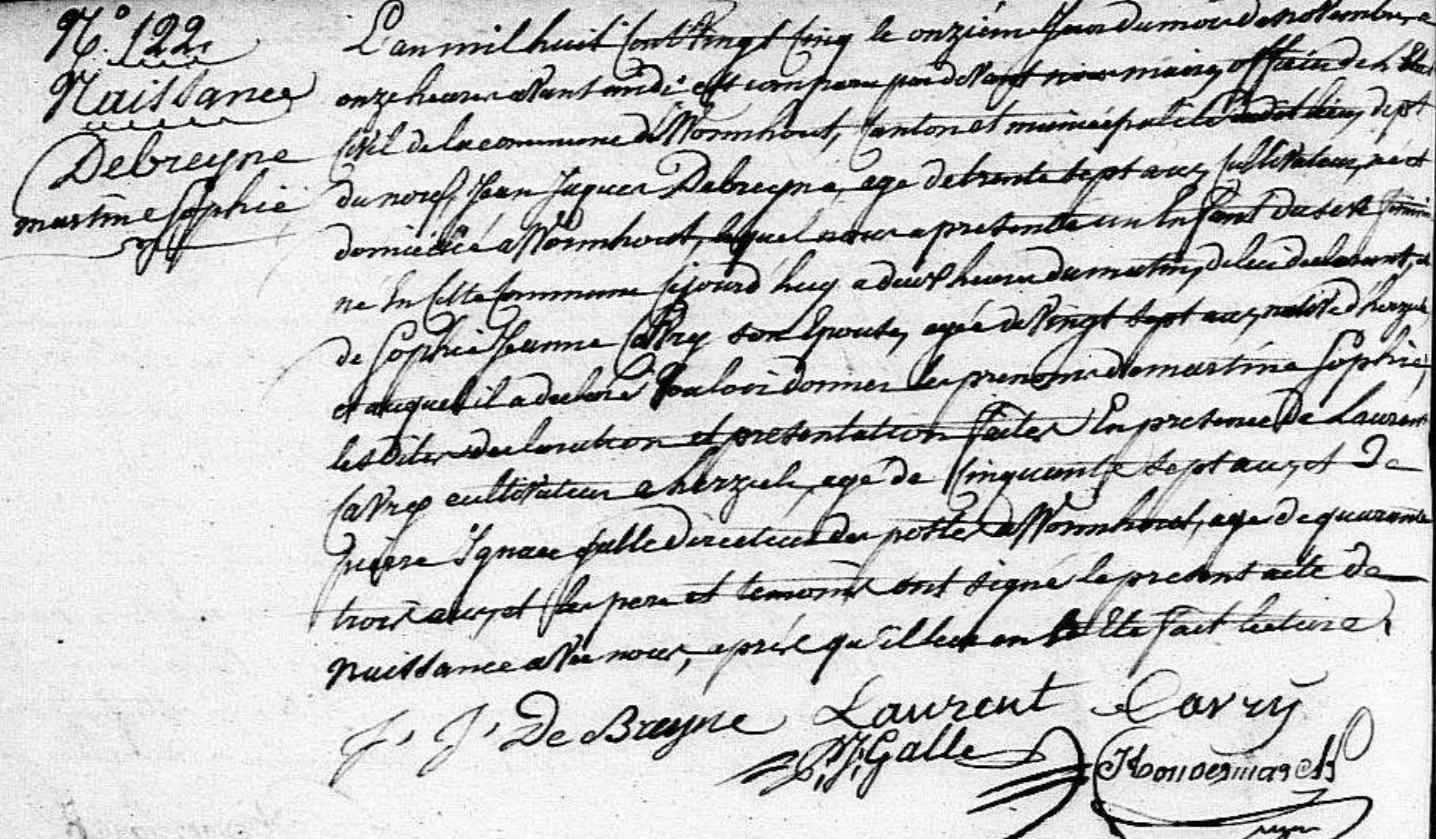 N.° 122
Naissance
Debreyne
martine Sophie
L'an mil huit Cent vingt Cinq le onzième Jour du mois de novembre a
onze heures avant midi est comparu pardevant nous maire, officier de l'Etat
Civil de la commune de Wormhout, Canton et municipalité dudit lieu, dept
du nord, Jean Jaques Debreyne, agé de trente sept ans, Cultivateur, né et
domicilié a Wormhout, lequel nous a presenté un Enfant du sexe feminin
né En Cette Commune Cejourd'huy a deux heures du matin, de lui declarant, et
de Sophie Jeanne Cavry son Epouse, agée de Vingt sept ans, native d'herzeele,
et auquel il a declaré Vouloir donner les prenoms de martine Sophie,
lesdites declaration et presentation faites En presence de Laurent
Cavry cultivateur a herzeele, agé de Cinquante sept ans, et De
pierre Ignace galle directeur des postes a Wormhout, agé de quarante
trois ans, et les pere et temoins ont signé le present acte de
Naissance avec nous, après qu'il leur en a Eté fait lecture.
J. J. De Breyne Laurent Cavrÿ
P. J. Galle